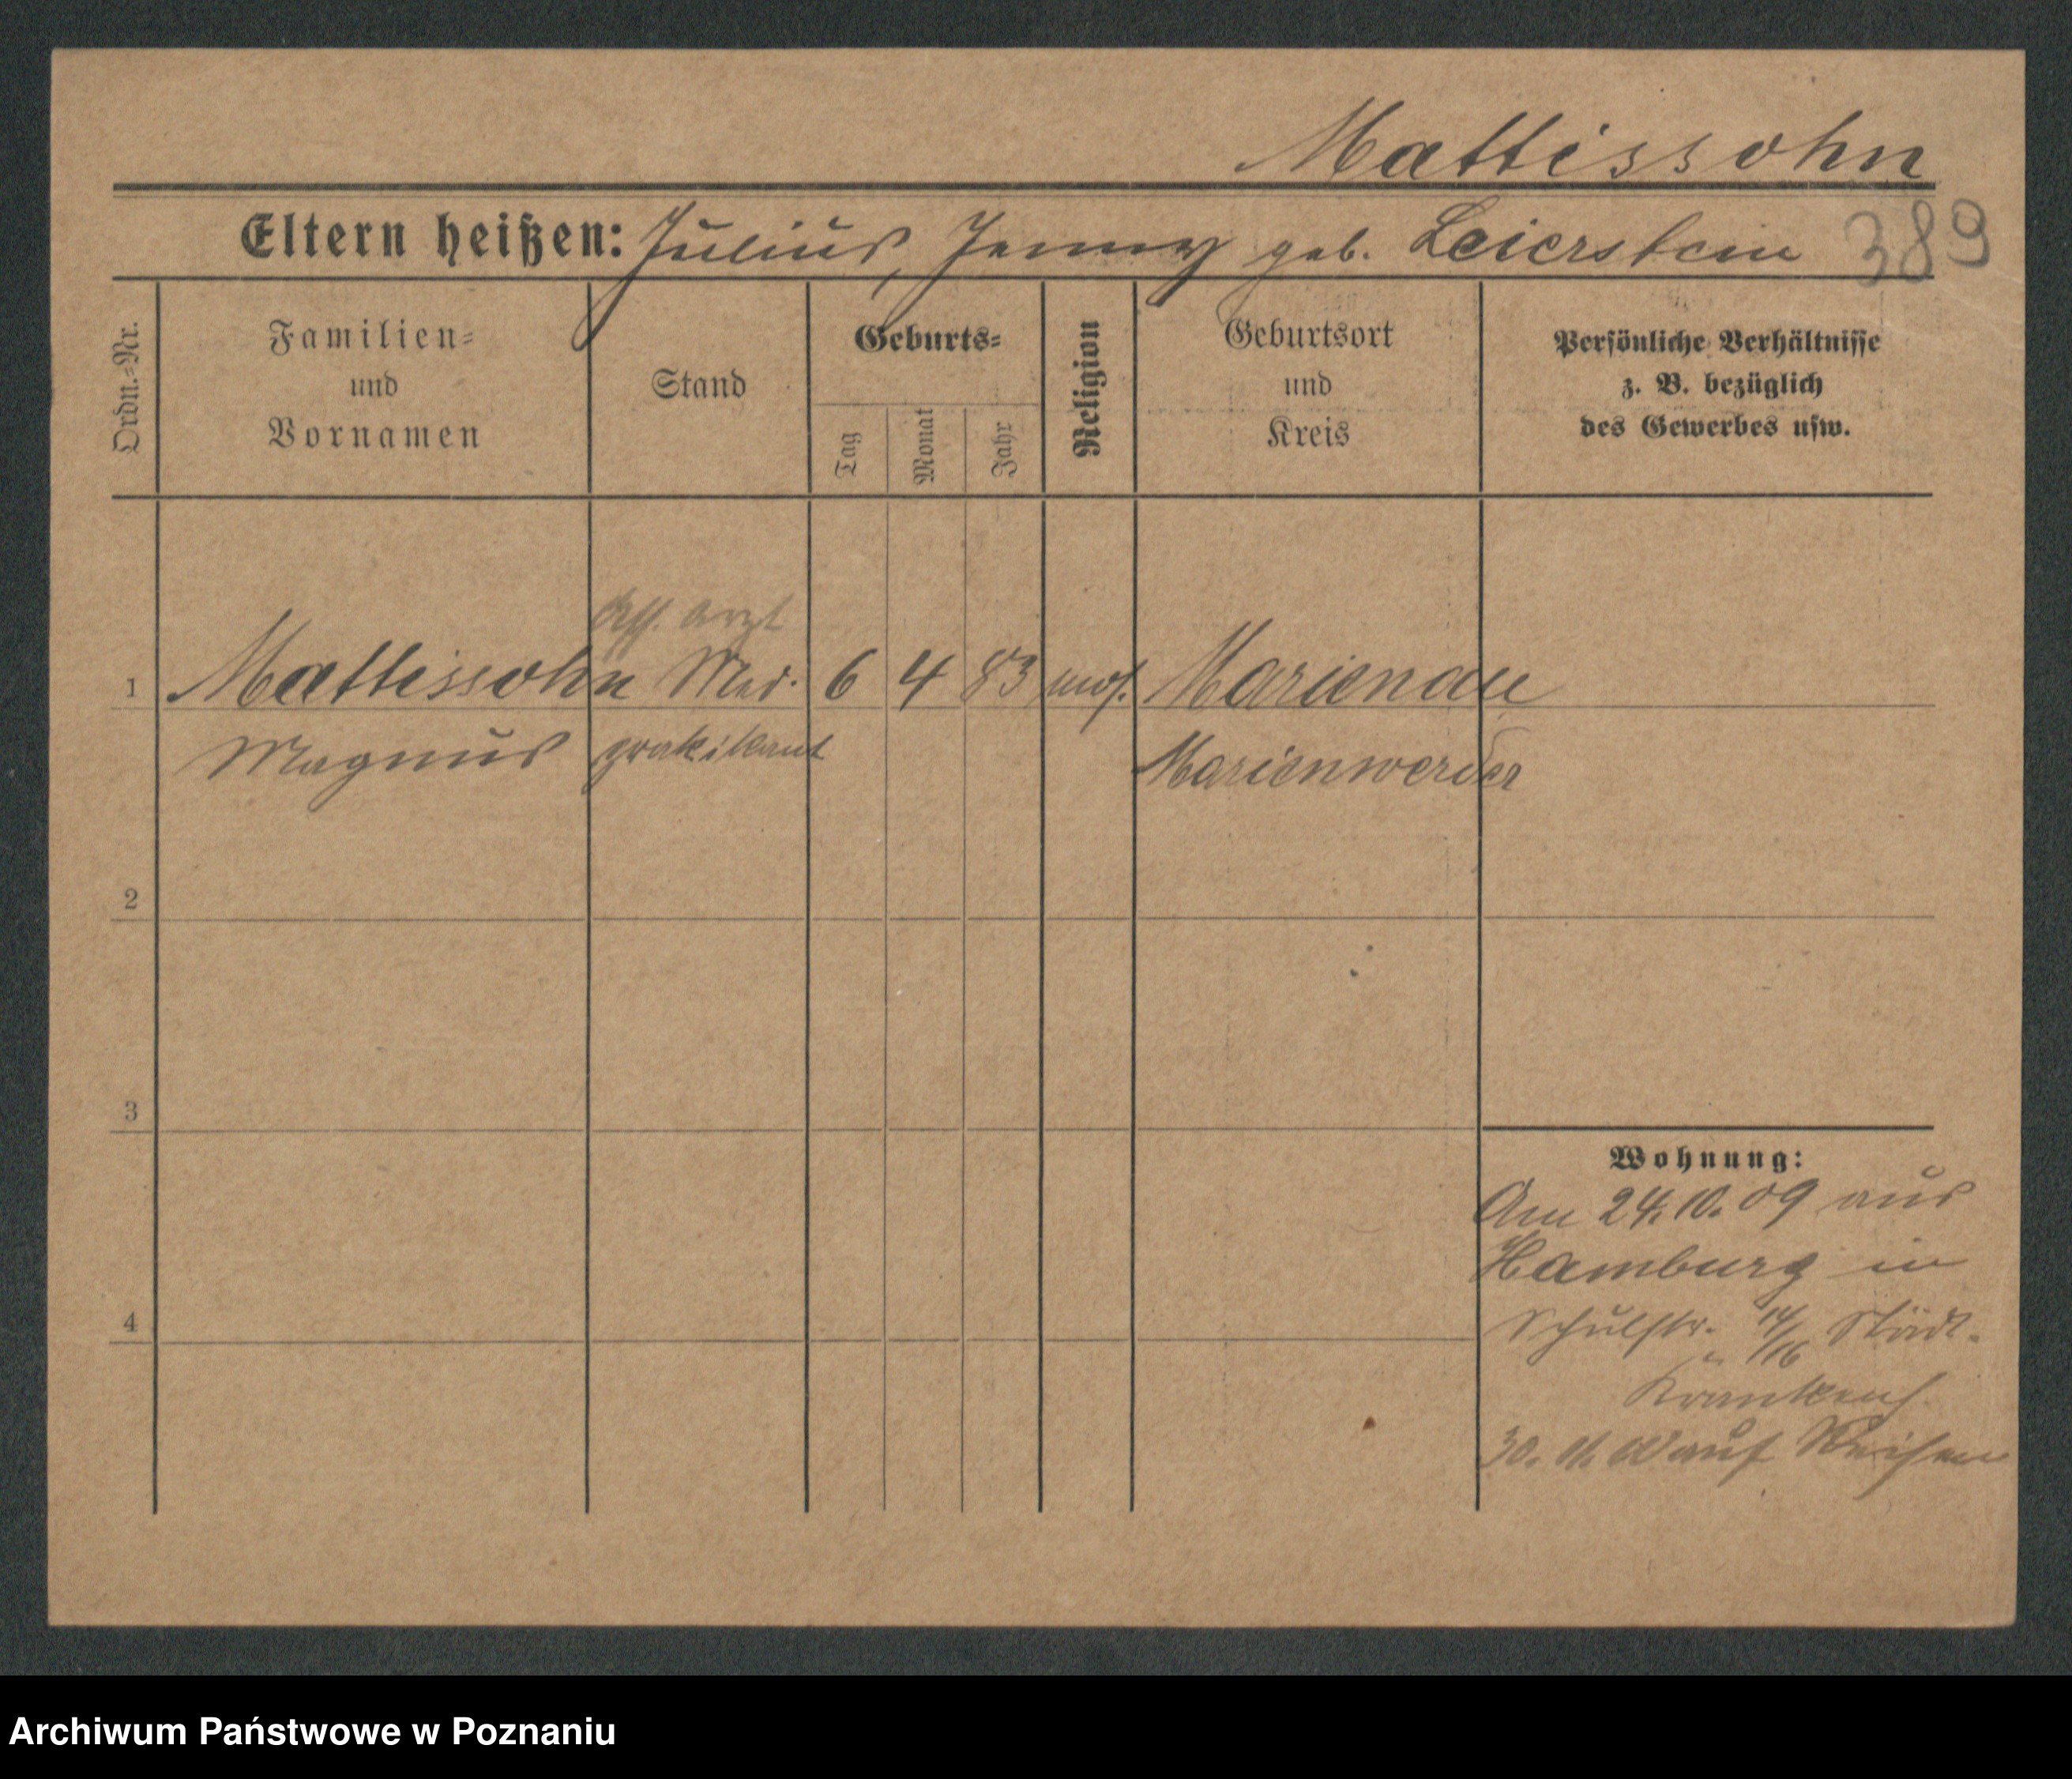 Mattissohn
Eltern heißen: Julius, Jenny geb. Leierstein 389
Ordn.=Nr.
Familien=
und
Vornamen
Stand
Geburts=
Tag
Monat
Jahr
Religion
Geburtsort
und
Kreis
Persönliche Verhältnisse
z. B. bezüglich
des Gewerbes usw.
Ass. arzt
1 Mattissohn Med. 6 4 83 mos. Marienau
Magnus praktikant Marienwerder
2
3
4
Wohnung:
Am 24. 10. 09 aus
Hamburg in
Schulstr. 14/16 Städt.
Krankenh.
30. 11. auf Reisen
Archiwum Państwowe w Poznaniu